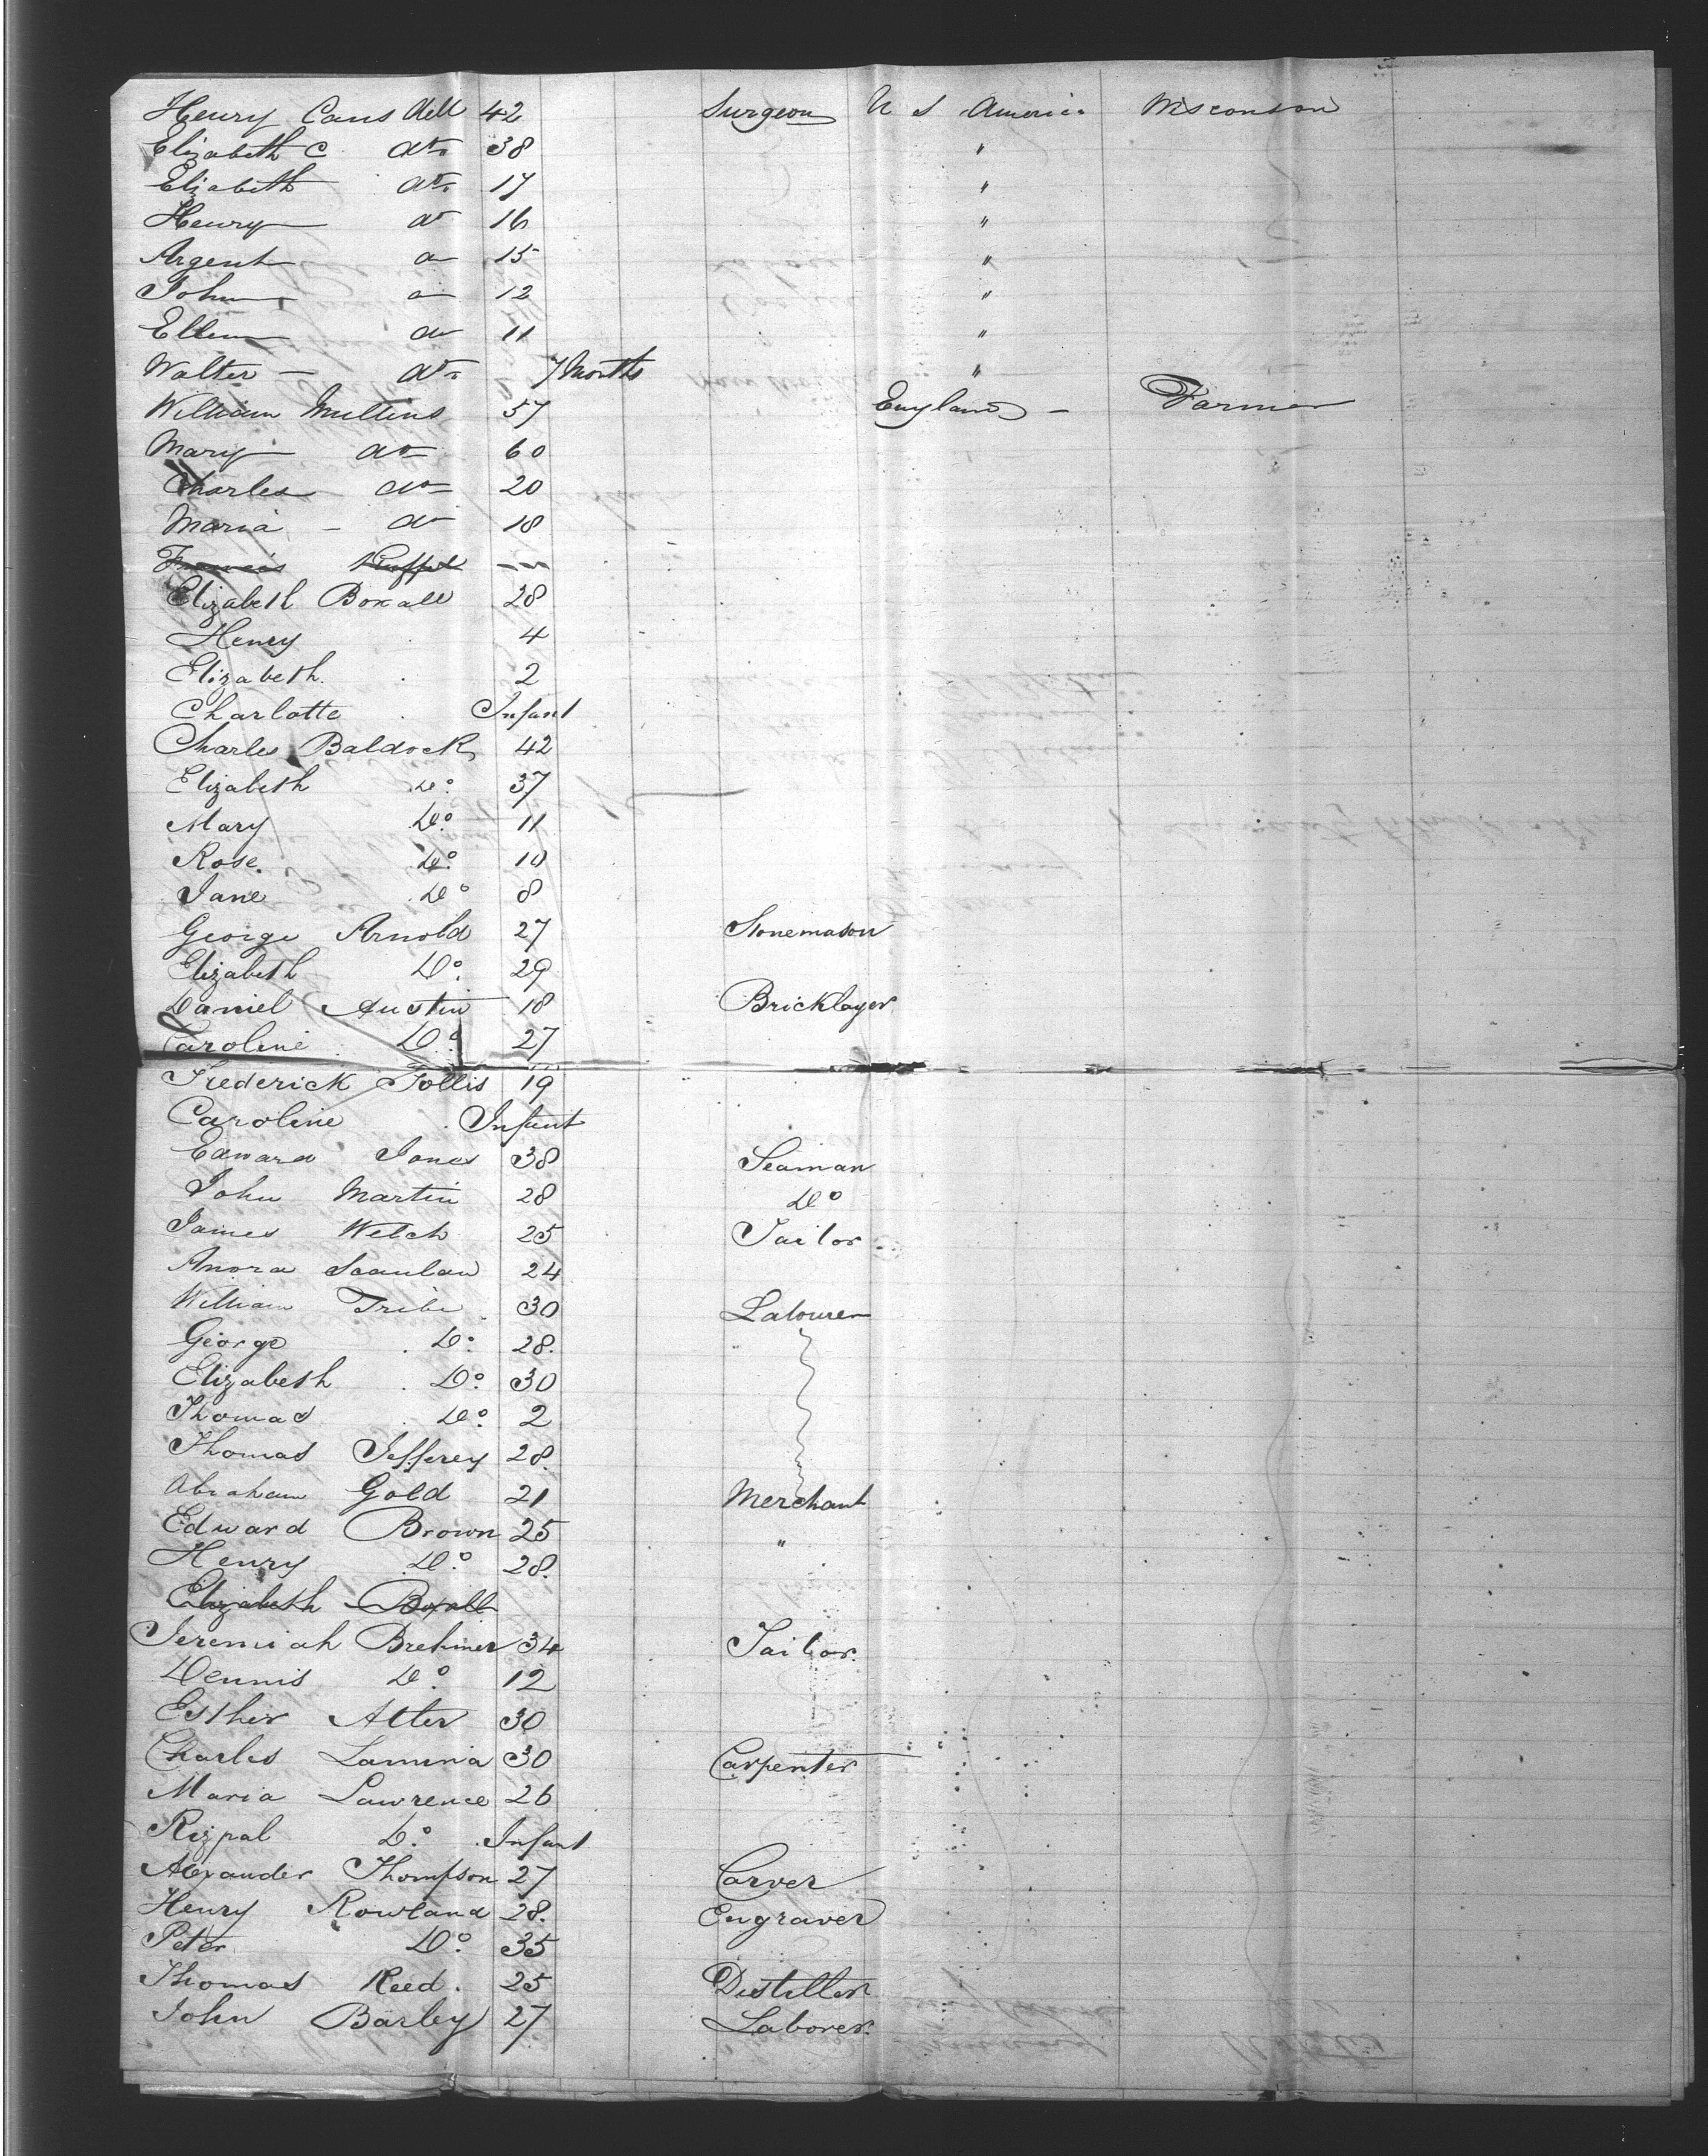 Henry Cans dell 42 Surgeon U S America Wisconson
Elizabeth C do 38 "
Elizabeth do 17 "
Henry do 16 "
Argent do 15 "
John do 12 "
Ellen do 11 "
Walter — do 7 Months "
William Mullens 57 England — Farmer
Mary do 60
Charles do 20
Maria - do 18
Francis
Elizabeth Boxall 28
Henry 4
Elizabeth. 2
Charlotte Infant
Charles Baldock 42
Elizabeth Do. 37
Mary Do. 11
Rose. Do. 10
Jane Do 8
George Arnold 27 Stonemason
Elizabeth Do. 29
Daniel Austin 18 Bricklayer
Caroline Do. 27
Frederick Follis 19
Caroline Infant
Edward Jones 38 Seaman
John Martin 28 Do
James Welch 25 Tailor
Anora Scanlan 24
William Tribe 30 Labourer
George Do. 28.
Elizabesh Do. 30
Thomas Do. 2
Thomas Jefferey 28.
Abraham Gold 21 Merchant
Edward Brown 25 "
Henry Do. 28.
Elizabeth Boxall
Jeremiah 34 Tailor.
Dennis Do. 12
Esther Alter 30
Charles Lamina 30 Carpenter
Maria Lawrence 26
Rizpal Do. Infant
Alexander Thompson 27 Carver
Henry Rowland 28. Engraver
Peter Do. 35
Thomas Reed. 25 Distiller
John Barley 27 Laborer.